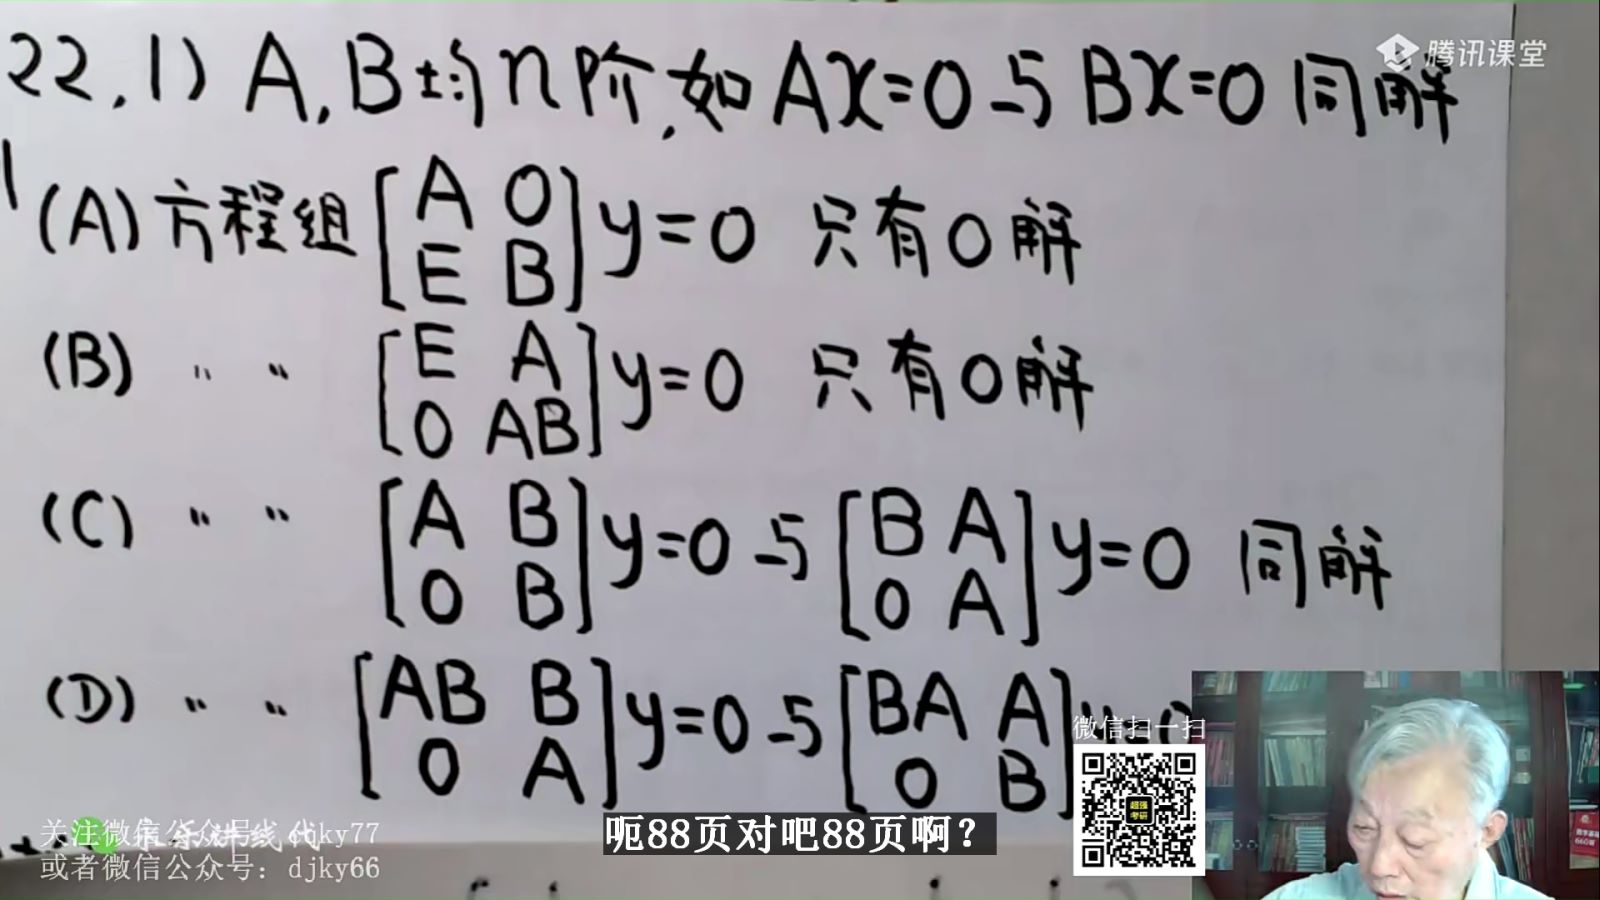 腾讯课堂
22,1) A,B均n阶,如 Ax=0与Bx=0同解
(A) 方程组 [A O; E B] y=0 只有0解
(B) 〃 〃 [E A; O AB] y=0 只有0解
(C) 〃 〃 [A B; O B] y=0 与 [B A; O A] y=0 同解
(D) 〃 〃 [AB B; O A] y=0 与 [BA A; O B]
微信扫一扫
超强
考研
关注微信公众号: djky77
或者微信公众号: djky66
呃88页对吧88页啊?